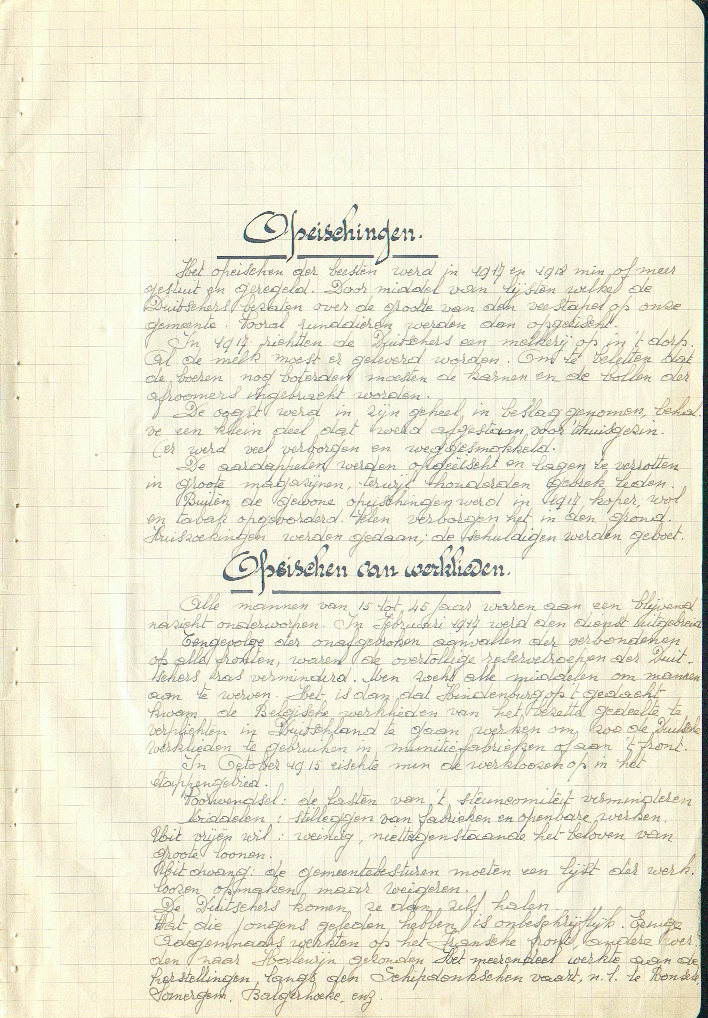 Opeischingen.
Het opeischen der beesten werd in 1917 en 1918 min of meer
gestuit en geregeld. Door middel van lijsten welke de
Duitschers bezaten over de grootte van den veestapel op onze
gemeente. Vooral runddieren werden dan opgeëischt.
In 1917 richtten de Duitschers een melkerij op in 't dorp.
Al de melk moest er geleverd worden. Om te beletten dat
de boeren nog boterden moesten de karnen en de bollen der
afroomers ingebracht worden.
De oogst werd in zijn geheel in beslag genomen, behal-
ve een klein deel dat werd afgestaan voor 't huisgezin.
(er werd veel verborgen en weggesmokkeld.
De aardappelen werden opgeëischt en lagen te verrotten
in groote magazijnen, terwijl honderden gebrek leden.
Buiten de gewone opeischingen werd in 1917 koper, wol
en tabak opgevorderd. Velen verborgen het in den grond.
Huiszoekingen werden gedaan; de schuldigen werden geboet.
Opeischen van werklieden.
Alle mannen van 15 tot 45 jaar waren aan een blijvend
nazicht onderworpen. In Februari 1917 werd den dienst uitgebreid
Tengevolge der onafgebroken aanvallen der verbondenen
op alle fronten, waren de overtollige reservetroepen der Duit-
schers ras verminderd. Men zocht alle middelen om mannen
aan te werven. Het is dan dat Hindenburg op 't gedacht
kwam de Belgische werklieden van het bezette gedeelte te
verplichten in Duitschland te gaan werken om zoo de Duitsche
werklieden te gebruiken in munitiefabrieken of aan 't front.
In October 1915 eischte men de werkloozen op in het
etappengebied.
Voorwendsel: de lasten van 't steuncomiteit verminderen
Middelen: stilleggen van fabrieken en openbare werken.
Uit vrijen wil: weinig, niettegenstaande het beloven van
groote loonen.
Uit dwang: de gemeentebesturen moeten een lijst der werk-
loozen opmaken maar weigeren.
De Duitschers komen ze dan zelf halen.
Wat die jongens geleden hebben is onbeschrijflijk. Eenige
werkten op het fransche front, andere wer-
den naar gezonden. Het meerendeel werkte aan de
herstellingen langs den Schipdonkschen vaart, n.l. te Ronsele,
Somergem, Balgerhoeke, enz.